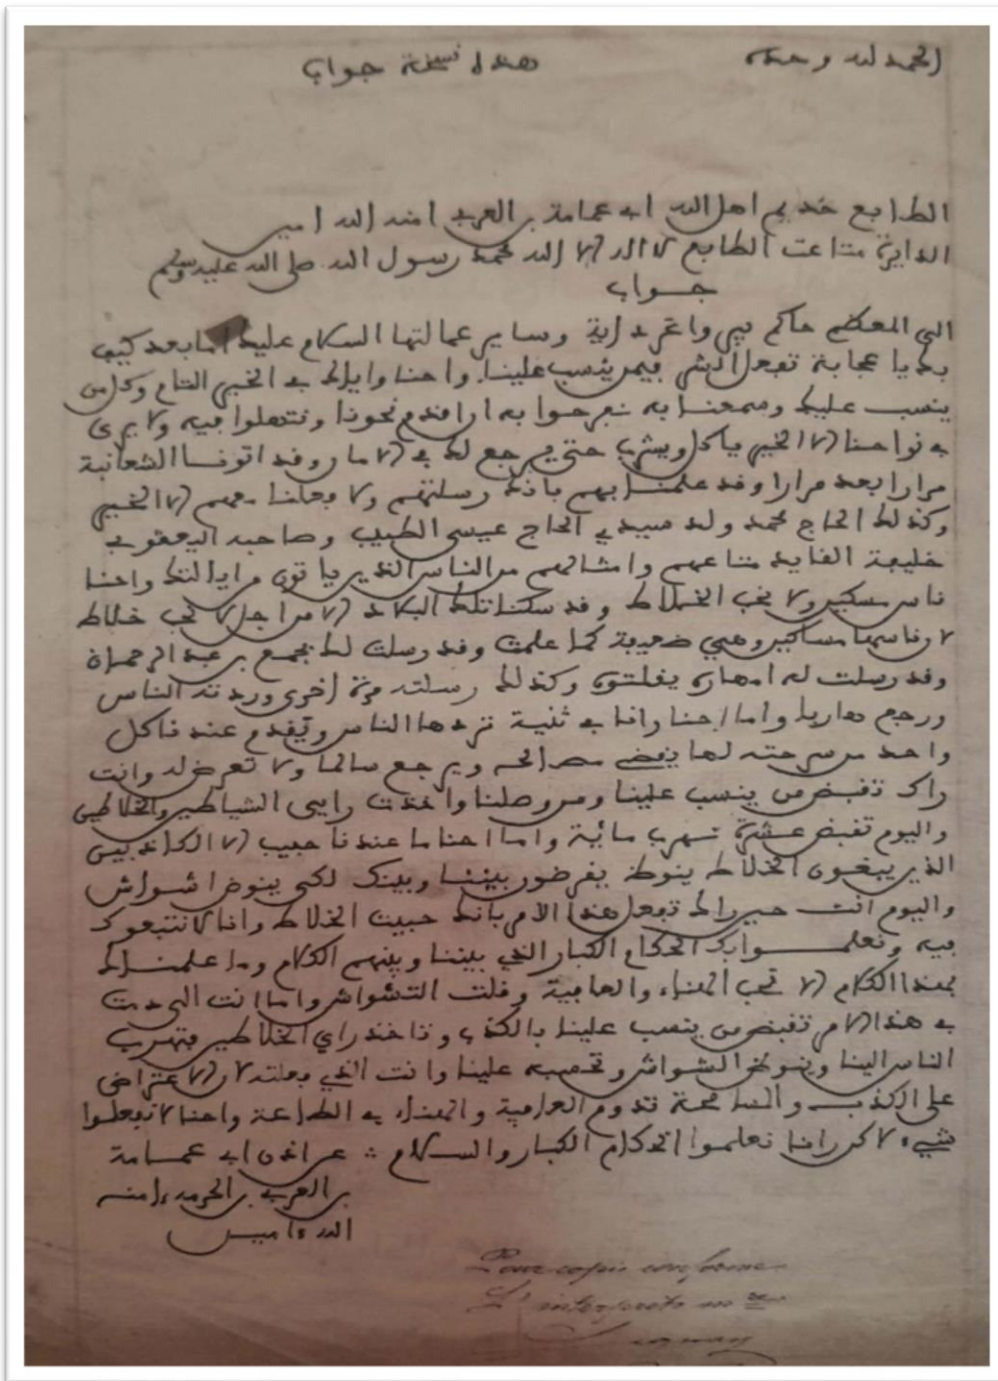 الحمد لله وحده
هذه نسخة جواب
الطابع خديم اهل الله ابي عمامة بن العربي امنه الله امين
الدايرة متاعت الطابع لا اله الا الله محمد رسول الله صلى الله عليه وسلم
جواب
الى المعظم حاكم واغرداية وساير عمالتها السلام عليك اما بعد كيف
بك يا عجابة تفعل الشر فيمن ينسب علينا واحنا وايلاك في الخير التام وكل من
ينسب عليك وسمعنا به نفرحوا به اذا قدم نحونا ونتهلوا فيه ولا يرى
في نواحنا الا الخير ياكل ويشرب حتى يرجع لك في الامان وقد اتونا الشعانبة
مرارا بعد مرارا وقد علمنا بهم بانك رسلتهم ولا فعلنا معهم الا الخير
وكذلك الحاج محمد ولد سيدي الحاج عيسى الطبيب وصاحبه اليعقوبي
خليفة القايد متاعهم وامثالهم من الناس الذين ياتون من ايالتك واحنا
ناس مساكين ولا نحب الخلاط وقد سكنا تلك البلاد الا من اجل لا نحب خلاط
لان ناسها مساكين وهي ضعيفة كما علمت وقد رسلت لك بجمع بن عبد الرحمان
وقد رسلت له امهاره يفلتون وكذلك رسلته مرة اخرى وردته الناس
ورجع هاربا واما احنا رانا في ثنية نردها الناس ويقدم عندنا كل
واحد من سرحته لها يقضي مصالحه ويرجع سالما ولا تعرض له وانت
راك تقبض من ينسب علينا ومن وصلنا واخذت رايى الشياطين والخلاطين
واليوم تقبض عشرة تهرب ماية واما احنا ما عندنا حبيب الا الكاذبين
الذي يبغون الخلاط ينوظ يفرضون بيننا وبينك لكي ينوض اشواش
واليوم انت حين راك تفعل هذا الامر بانك حبيت الخلاط وانا لا نتبعوك
فيه ونعلموا بك الحكام الكبار الذي بيننا وبينهم الكلام وما علمناك
بهذا الكلام الا نحب الهناء والعافية وقلت التشواش واما انت الى دمت
في هذا الامر تقبض من ينسب علينا بالكذب وتاخذ راي الخلاطين فتهرب
الناس الينا وينوض الشواش وتحسبه علينا وانت الذي فعلته لان الاعتراض
على الكذب والسامحة تدوم العافية والهناء في الطاعة واحنا لا نفعلوا
شيء لاكن رانا نعلموا الحكام الكبار والسلام : عن اذن ابي عمامة
بن العربي بن الحرمه امنه
الله امين
Pour copie conforme
L'interprète m<sup>re</sup>